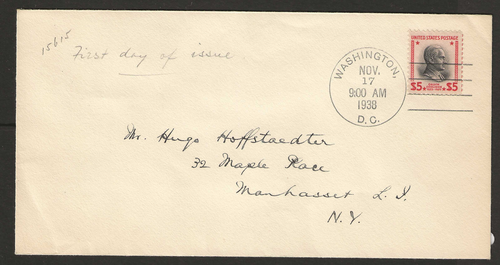 15615
First day of issue
UNITED STATES POSTAGE
$5 $5
WASHINGTON,
NOV.
17
9:00 AM
1938
D.C.
Mr. Hugo Hoffstaedter
32 Maple Place
Manhasset L.I.
N.Y.